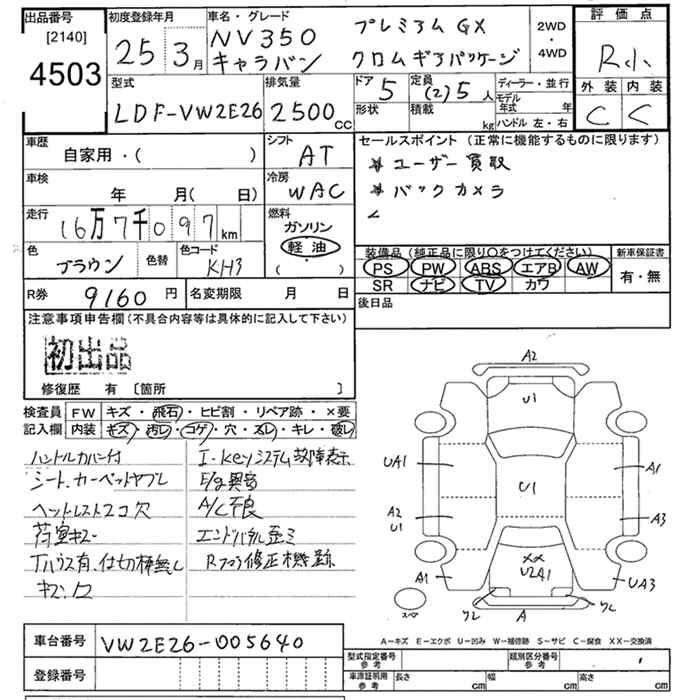 出品番号 初度登録年月 車名・グレード 評価点
[2140] 25 3月 NV350 プレミアム GX 2WD
4503 キャラバン クロムギアパッケージ ・ 4WD R小
型式 排気量 ドア 定員 ディーラー・並行 外装 内装
LDF-VW2E26 2500cc 5 (2)5人 モデル年式 年 C C
形状 積載 kg ハンドル 左・右
車歴 シフト セールスポイント(正常に機能するものに限ります)
自家用・( ) AT * ユーザー買取
車検 冷房 * バックカメラ
年 月( 日) WAC
走行 燃料
16万7千097km ガソリン
色 色替 色コード 軽油
ブラウン KH3 ( ・ )
装備品(純正品に限り○をつけてください) 新車保証書
PS PW ABS エアB AW 有・無
SR ナビ TV カワ
R券 9160円 名変期限 月 日 後日品
注意事項申告欄(不具合内容等は具体的に記入して下さい)
初出品
修復歴 有 〔箇所 〕
検査員 FW キズ・飛石・ヒビ割・リペア跡・×要
記入欄 内装 キズ・汚レ・コゲ・穴・スレ・キレ・破レ
ハンドルカバー付 I-keyシステム故障表示
シート、カーペットヤブレ E/g異音
ヘッドレスト2コ欠 A/C不良
荷室キズ エンドパネル歪ミ
Tハウス有、仕切棒無し Rフロア修正機跡
A2
U1
UA1 A1
U1
A2 A3
U1
XX
U2A1
A1 UA3
スペア A
A-キズ E-エクボ U-凹み W-補修跡 S-サビ C-腐食 XX-交換済
車台番号 VW2E26-005640
登録番号
型式指定番号 参考 類別区分番号 参考
車庫証明用 参考 長さ cm 幅 cm 高さ cm